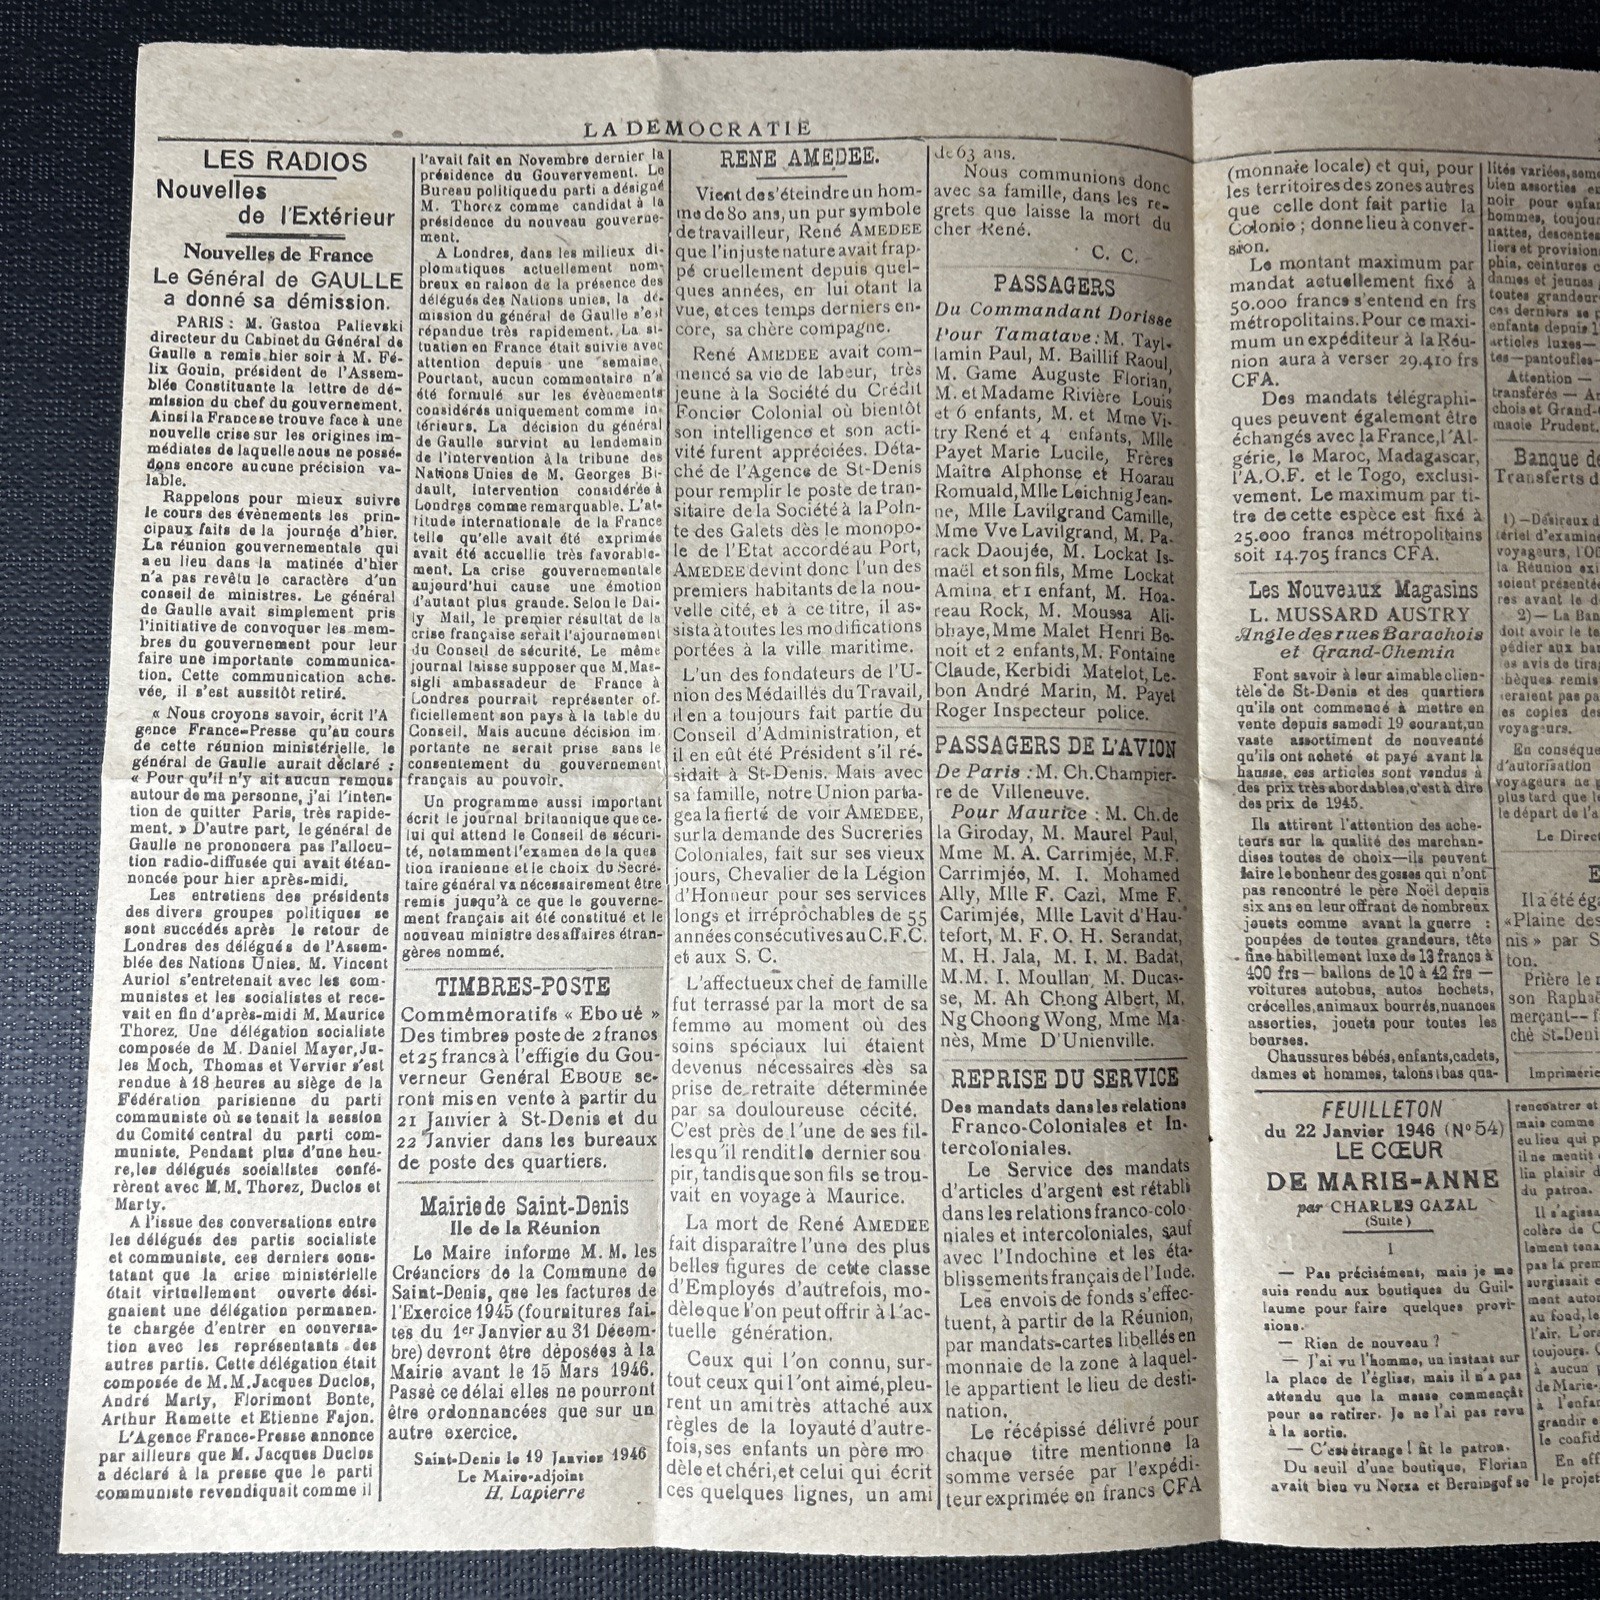 LA DEMOCRATIE
LES RADIOS
Nouvelles
de l'Extérieur
Nouvelles de France
Le Général de GAULLE
a donné sa démission.
PARIS : M. Gaston Palievski
directeur du Cabinet du Général de
Gaulle a remis hier soir à M. Fé-
lix Gouin, président de l'Assem-
blée Constituante la lettre de dé-
mission du chef du gouvernement.
Ainsi la France se trouve face à une
nouvelle crise sur les origines im-
médiates de laquelle nous ne possé-
dons encore aucune précision va-
lable.
Rappelons pour mieux suivre
le cours des évènements les prin-
cipaux faits de la journée d'hier.
La réunion gouvernementale qui
a eu lieu dans la matinée d'hier
n'a pas revêtu le caractère d'un
conseil de ministres. Le général
de Gaulle avait simplement pris
l'initiative de convoquer les mem-
bres du gouvernement pour leur
faire une importante communica-
tion. Cette communication ache-
vée, il s'est aussitôt retiré.
« Nous croyons savoir, écrit l'A
gence France-Presse qu'au cours
de cette réunion ministérielle, le
général de Gaulle aurait déclaré :
« Pour qu'il n'y ait aucun remous
autour de ma personne, j'ai l'inten-
tion de quitter Paris, très rapide-
ment. » D'autre part, le général de
Gaulle ne prononcera pas l'allocu-
tion radio-diffusée qui avait étéan-
noncée pour hier après-midi.
Les entretiens des présidents
des divers groupes politiques se
sont succédés après le retour de
Londres des délégués de l'Assem-
blée des Nations Unies. M. Vincent
Auriol s'entretenait avec les com-
munistes et les socialistes et rece-
vait en fin d'après-midi M. Maurice
Thorez. Une délégation socialiste
composée de M. Daniel Mayer, Ju-
les Moch, Thomas et Vervier s'est
rendue à 18 heures au siège de la
Fédération parisienne du parti
communiste où se tenait la session
du Comité central du parti com-
muniste. Pendant plus d'une heu-
re, les délégués socialistes confé-
rèrent avec M.M. Thorez, Duclos et
Marty.
A l'issue des conversations entre
les délégués des partis socialiste
et communiste, ces derniers cons-
tatant que la crise ministérielle
était virtuellement ouverte dési-
gnaient une délégation permanen-
te chargée d'entrer en conversa-
tion avec les représentants des
autres partis. Cette délégation était
composée de M.M. Jacques Duclos,
André Marty, Florimont Bonte,
Arthur Ramette et Etienne Fajon.
L'Agence France-Presse annonce
par ailleurs que M. Jacques Duclos
a déclaré à la presse que le parti
communiste revendiquait comme il
l'avait fait en Novembre dernier la
présidence du Gouvervement. Le
Bureau politique du parti a désigné
M. Thorez comme candidat à la
présidence du nouveau gouverne-
ment.
A Londres, dans les milieux di-
plomatiques actuellement nom-
breux en raison de la présence des
délégués des Nations unies, la dé-
mission du général de Gaulle s'est
répandue très rapidement. La si-
tuation en France était suivie avec
attention depuis une semaine.
Pourtant, aucun commentaire n'a
été formulé sur les évènements
considérés uniquement comme in-
térieurs. La décision du général
de Gaulle survint au lendemain
de l'intervention à la tribune des
Nations Unies de M. Georges Bi-
dault, intervention considérée à
Londres comme remarquable. L'at-
titude internationale de la France
telle qu'elle avait été exprimée
avait été accuellie très favorable-
ment. La crise gouvernementale
aujourd'hui cause une émotion
d'autant plus grande. Selon le Dai-
ly Mail, le premier résultat de la
crise française serait l'ajournement
du Conseil de sécurité. Le même
journal laisse supposer que M. Mas-
sigli ambassadeur de France à
Londres pourrait représenter of-
ficiellement son pays à la table du
Conseil. Mais aucune décision im-
portante ne serait prise sans le
consentement du gouvernement
français au pouvoir.
Un programme aussi important
écrit le journal britannique que ce-
lui qui attend le Conseil de sécuri-
té, notamment l'examen de la ques
tion iranienne et le choix du Secré-
taire général va nécessairement être
remis jusqu'à ce que le gouverne-
ment français ait été constitué et le
nouveau ministre des affaires étran-
gères nommé.
TIMBRES-POSTE
Commémoratifs « Eboué »
Des timbres poste de 2 francs
et 25 francs à l'effigie du Gou-
verneur Général EBOUE se-
ront mis en vente à partir du
21 Janvier à St-Denis et du
22 Janvier dans les bureaux
de poste des quartiers.
Mairie de Saint-Denis
Ile de la Réunion
Le Maire informe M. M. les
Créanciers de la Commune de
Saint-Denis, que les factures de
l'Exercice 1945 (fournitures fai-
tes du 1er Janvier au 31 Décem-
bre) devront être déposées à la
Mairie avant le 15 Mars 1946.
Passé ce délai elles ne pourront
être ordonnancées que sur un
autre exercice.
Saint-Denis le 19 Janvier 1946
Le Maire-adjoint
H. Lapierre
RENE AMEDEE.
Vient de s'éteindre un hom-
me de 80 ans, un pur symbole
de travailleur, René AMEDEE
que l'injuste nature avait frap-
pé cruellement depuis quel-
ques années, en lui otant la
vue, et ces temps derniers en-
core, sa chère compagne.
René AMEDEE avait com-
mencé sa vie de labeur, très
jeune à la Société du Crédit
Foncier Colonial où bientôt
son intelligence et son acti-
vité furent appréciées. Déta-
ché de l'Agence de St-Denis
pour remplir le poste de tran-
sitaire de la Société à la Poin-
te des Galets dès le monopo-
le de l'Etat accordé au Port,
AMEDEE devint donc l'un des
premiers habitants de la nou-
velle cité, et à ce titre, il as-
sista à toutes les modifications
portées à la ville maritime.
L'un des fondateurs de l'U-
nion des Médaillés du Travail,
il en a toujours fait partie du
Conseil d'Administration, et
il en eût été Président s'il ré-
sidait à St-Denis. Mais avec
sa famille, notre Union parta-
gea la fierté de voir AMEDEE,
sur la demande des Sucreries
Coloniales, fait sur ses vieux
jours, Chevalier de la Légion
d'Honneur pour ses services
longs et irréprochables de 55
années consécutives au C.F.C.
et aux S. C.
L'affectueux chef de famille
fut terrassé par la mort de sa
femme au moment où des
soins spéciaux lui étaient
devenus nécessaires dès sa
prise de retraite déterminée
par sa douloureuse cécité.
C'est près de l'une de ses fil-
les qu'il rendit le dernier sou
pir, tandis que son fils se trou-
vait en voyage à Maurice.
La mort de René AMEDEE
fait disparaître l'une des plus
belles figures de cette classe
d'Employés d'autrefois, mo-
dèle que l'on peut offrir à l'ac-
tuelle génération.
Ceux qui l'on connu, sur-
tout ceux qui l'ont aimé, pleu-
rent un ami très attaché aux
règles de la loyauté d'autre-
fois, ses enfants un père mo
dèle et chéri, et celui qui écrit
ces quelques lignes, un ami
de 63 ans.
Nous communions donc
avec sa famille, dans les re-
grets que laisse la mort du
cher René.
C. C.
PASSAGERS
Du Commandant Dorisse
Pour Tamatave : M. Tayl-
lamin Paul, M. Baillif Raoul,
M. Game Auguste Florian,
M. et Madame Rivière Louis
et 6 enfants, M. et Mme Vi-
try René et 4 enfants, Mlle
Payet Marie Lucile, Frères
Maître Alphonse et Hoarau
Romuald, Mlle Leichnig Jean-
ne, Mlle Lavilgrand Camille,
Mme Vve Lavilgrand, M. Pa-
rack Daoujée, M. Lockat Is-
maël et son fils, Mme Lockat
Amina et 1 enfant, M. Hoa-
reau Rock, M. Moussa Ali-
bhaye, Mme Malet Henri Be-
noit et 2 enfants, M. Fontaine
Claude, Kerbidi Matelot, Le-
bon André Marin, M. Payet
Roger Inspecteur police.
PASSAGERS DE L'AVION
De Paris : M. Ch. Champier-
re de Villeneuve.
Pour Maurice : M. Ch. de
la Giroday, M. Maurel Paul,
Mme M. A. Carrimjée, M.F.
Carrimjée, M. I. Mohamed
Ally, Mlle F. Cazi, Mme F.
Carimjée, Mlle Lavit d'Hau-
tefort, M. F. O. H. Serandat,
M. H. Jala, M. I. M. Badat,
M.M. I. Moullan, M. Ducas-
se, M. Ah Chong Albert, M.
Ng Choong Wong, Mme Ma-
nès, Mme D'Unienville.
REPRISE DU SERVICE
Des mandats dans les relations
Franco-Coloniales et In-
tercoloniales.
Le Service des mandats
d'articles d'argent est rétabli
dans les relations franco-colo
niales et intercoloniales, sauf
avec l'Indochine et les éta-
blissements français de l'Inde.
Les envois de fonds s'effec-
tuent, à partir de la Réunion,
par mandats-cartes libellés en
monnaie de la zone à laquel-
le appartient le lieu de desti-
nation.
Le récépissé délivré pour
chaque titre mentionne la
somme versée par l'expédi-
teur exprimée en francs CFA
(monnaie locale) et qui, pour
les territoires des zones autres
que celle dont fait partie la
Colonie ; donne lieu à conver-
sion.
Le montant maximum par
mandat actuellement fixé à
50.000 francs s'entend en frs
métropolitains. Pour ce maxi-
mum un expéditeur à la Réu-
nion aura à verser 29.410 frs
CFA.
Des mandats télégraphi-
ques peuvent également être
échangés avec la France, l'Al-
gérie, le Maroc, Madagascar,
l'A.O.F. et le Togo, exclusi-
vement. Le maximum par ti-
tre de cette espèce est fixé à
25.000 francs métropolitains
soit 14.705 francs CFA.
Les Nouveaux Magasins
L. MUSSARD AUSTRY
Angle des rues Barachois
et Grand-Chemin
Font savoir à leur aimable clien-
tèle de St-Denis et des quartiers
qu'ils ont commencé à mettre en
vente depuis samedi 19 courant, un
vaste assortiment de nouveauté
qu'ils ont acheté et payé avant la
hausse, ces articles sont vendus à
des prix très abordables, c'est à dire
des prix de 1945.
Ils attirent l'attention des ache-
teurs sur la qualité des marchan-
dises toutes de choix—ils peuvent
faire le bonheur des gosses qui n'ont
pas rencontré le père Noël depuis
six ans en leur offrant de nombreux
jouets comme avant la guerre :
poupées de toutes grandeurs, tête
fine habillement luxe de 13 francs à
400 frs — ballons de 10 à 42 frs —
voitures autobus, autos hochets,
crécelles, animaux bourrés, nuances
assorties, jouets pour toutes les
bourses.
Chaussures bébés, enfants, cadets,
dames et hommes, talons ibas qua-
lités variées, some
bien assorties en
noir pour enfan
hommes, toujou
nattes, descentes
liers et provision
phia, ceintures c
dames et jeunes
toutes grandeur
ces derniers se p
enfants depuis 1
articles luxes—
tes—pantoufles-
Attention —
transférés — An
chois et Grand-
macie Prudent.
Banque de
Transferts d
1) —Désireux d
tériel d'examine
voyageurs, l'Of
la Réunion exi
soient présentée
res avant le d
2)— La Ban
doit avoir le te
pédier aux ban
es avis de tirag
hèques remis
eraient pas pa
es copies des
voyageurs.
En conséque
d'autorisation
voyageurs ne p
plus tard que le
le départ de l'a
Le Direct
E
Il a été éga
«Plaine des
nis» par S
ton.
Prière le r
son Rapha
merçant— f
ché St-Deni
Imprimerie
FEUILLETON
du 22 Janvier 1946 (N° 54)
LE CŒUR
DE MARIE-ANNE
par CHARLES CAZAL
(Suite)
I
— Pas précisément, mais je me
suis rendu aux boutiques du Guil-
laume pour faire quelques provi-
sions.
— Rien de nouveau ?
— J'ai vu l'homme, un instant sur
la place de l'église, mais il n'a pas
attendu que la messe commençât
pour se retirer. Je ne l'ai pas revu
à la sortie.
— C'est étrange ! fit le patron.
Du seuil d'une boutique, Florian
avait bien vu Norxa et Berningof se
rencontrer et
mais comme
eu lieu qui p
il ne mentit
lin plaisir d
du patron.
Il s'agissa
colère de C
lament tena
pas la prem
surgissait e
ment autou
au fond, le
l'air. L'ors
toujours. C
à aucun p
de Marie-
à l'enfan
grandir e
le confid
En eff
le projet